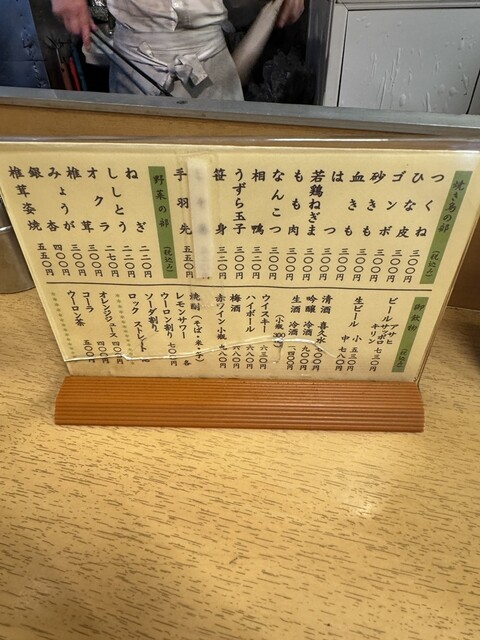 焼き鳥の部 (税込み)
つくね 三〇〇円
ひな皮 三〇〇円
ゴンボ 三〇〇円
砂ぎも 三〇〇円
血ぎも 三〇〇円
はつ 三〇〇円
若鶏ねぎま 三〇〇円
もも肉 三〇〇円
なんこつ 三〇〇円
相鴨 三二〇円
うずら玉子 三三〇円
笹身 三二〇円
手羽先 五五〇円
野菜の部 (税込み)
ねぎ 二二〇円
ししとう 二二〇円
オクラ 二七〇円
椎茸 三〇〇円
みょうが 四〇〇円
銀杏 四〇〇円
椎茸姿焼 五五〇円
御飲物 (税込み)
ビール アサヒ サッポロ キリン 七三〇円
生ビール 小 五三〇円
中 七八〇円
清酒 喜久水 七〇〇円
吟醸 冷酒 九〇〇円
生酒 冷酒
ウイスキー 六三〇円
(小瓶)
ハイボール 六八〇円
梅酒
赤ワイン小瓶 九八〇円
焼酎 (そば・米・芋)
レモンサワー 各
ウーロン割り 七〇〇円
ソーダ割り
ロック ストレート
オレンジジュース 四〇〇円
コーラ 四〇〇円
ウーロン茶 五〇〇円